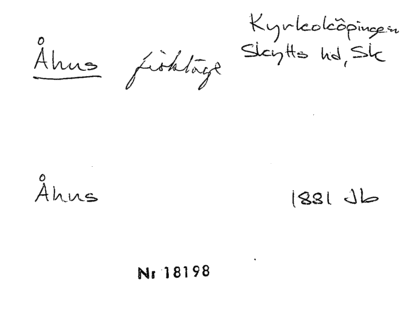 Åhus fiskläge Kyrkoköpinge sn
Skytts hd, Sk
Åhus 1881 Jb
Nr 18198